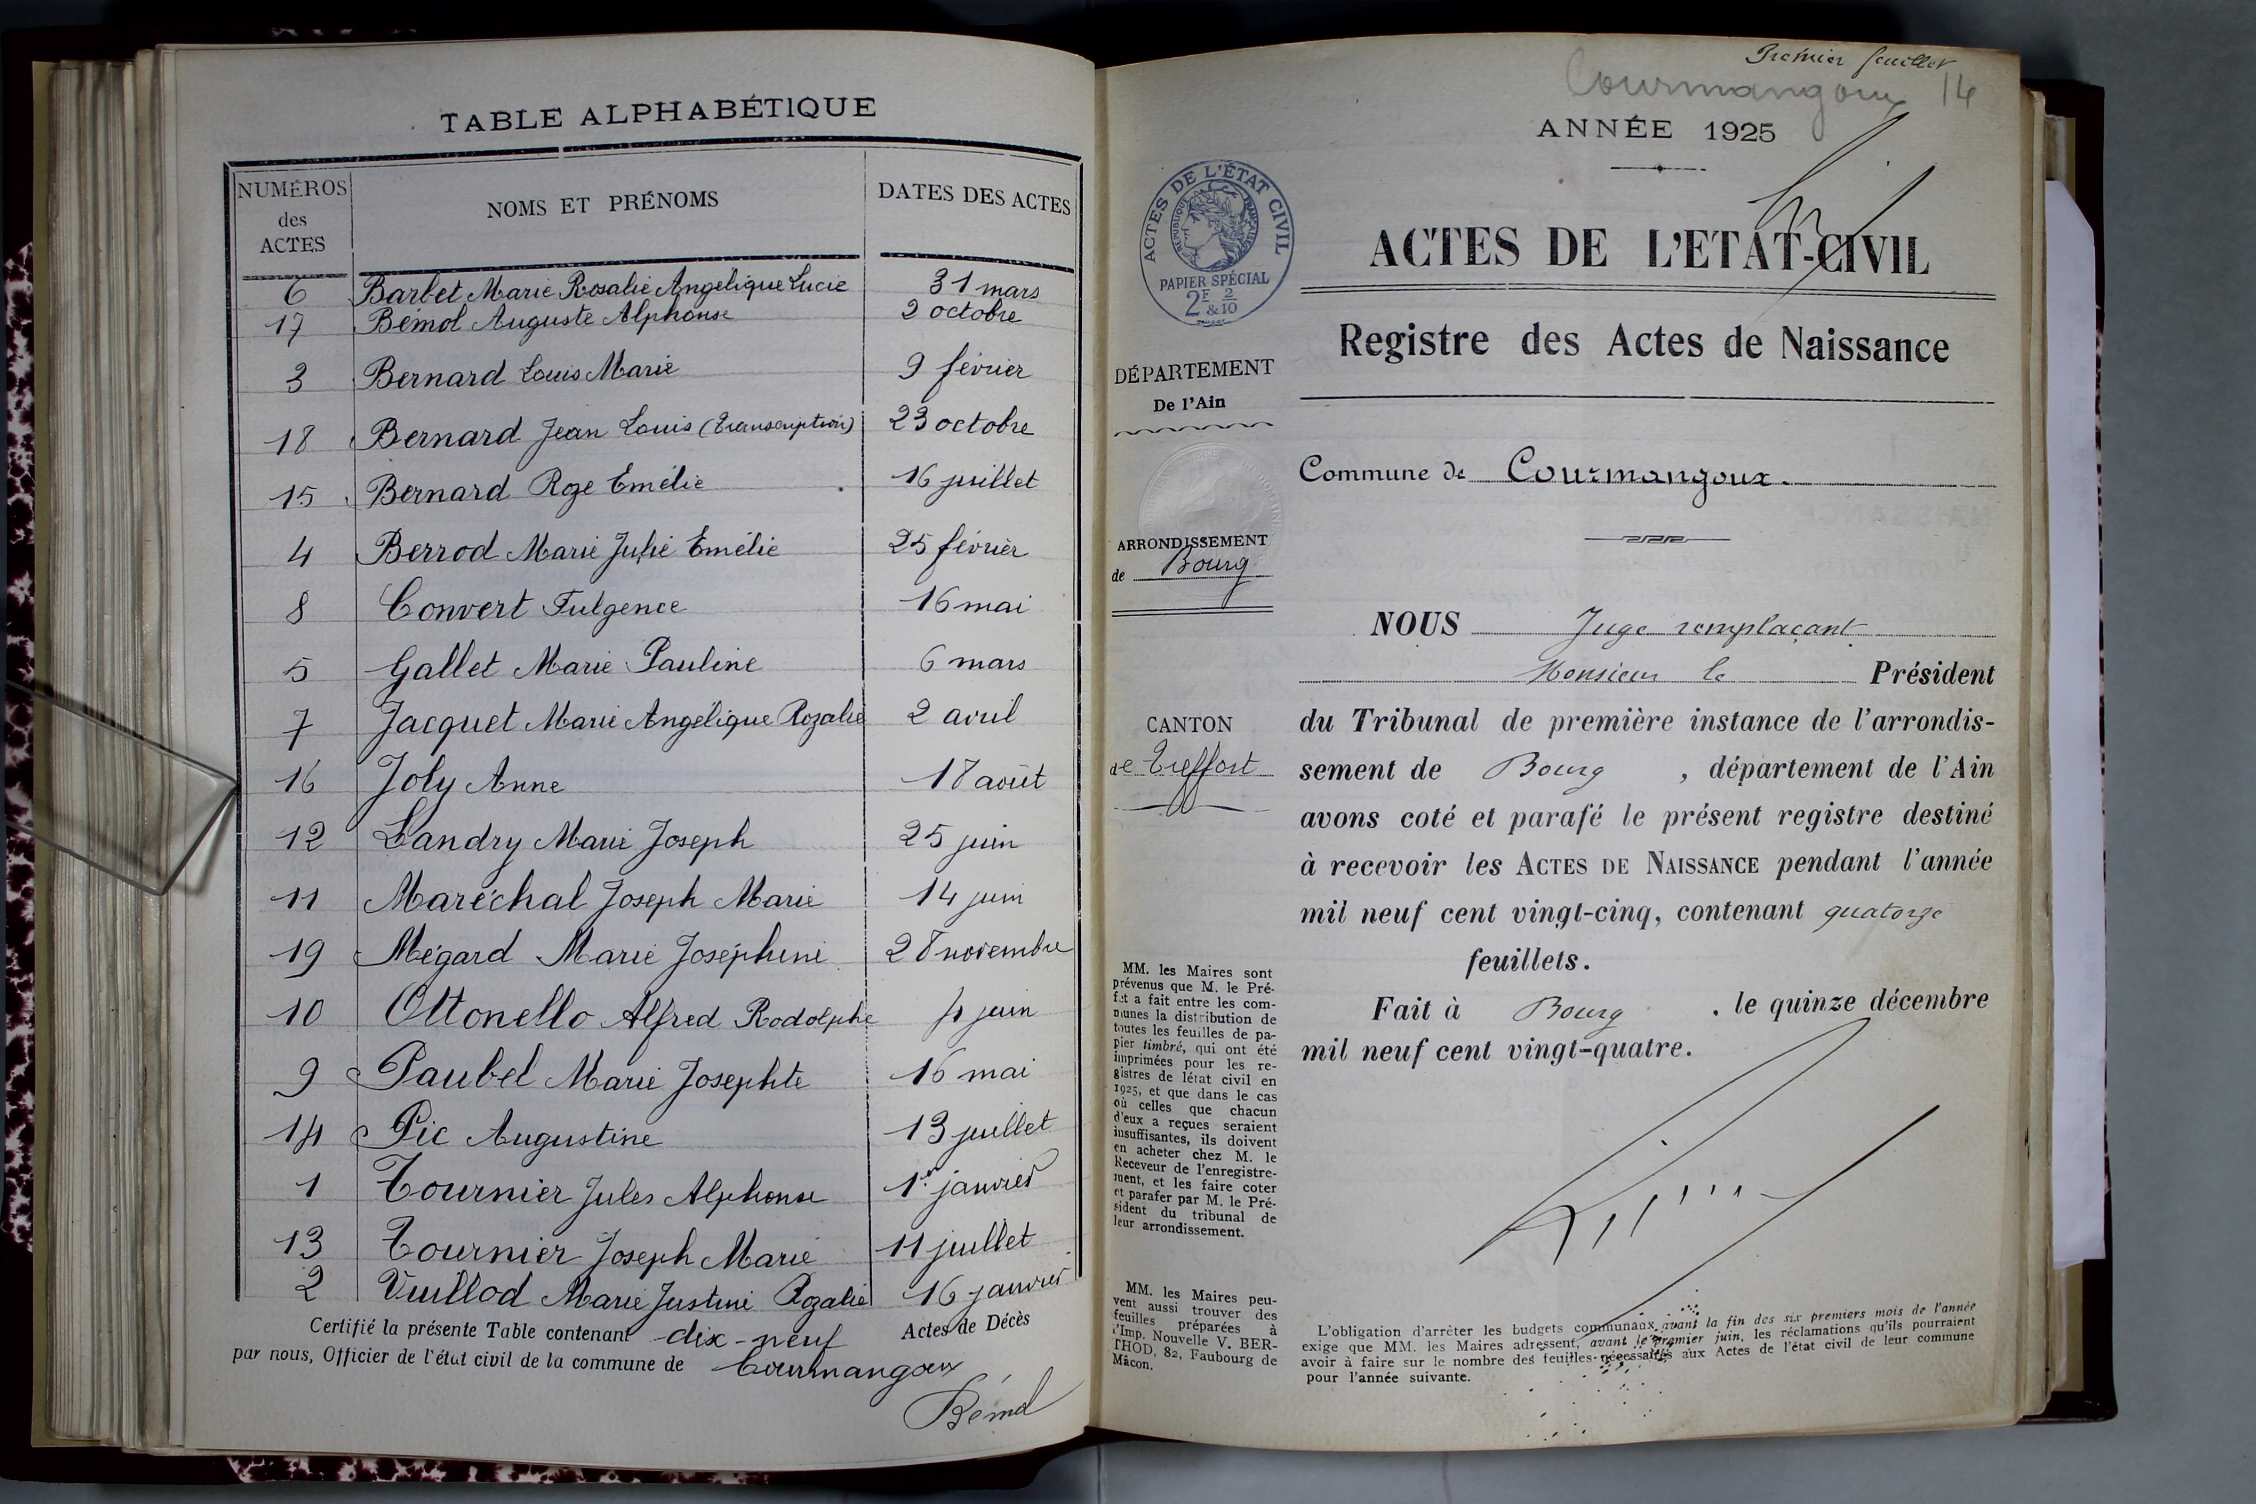 TABLE ALPHABÉTIQUE
NUMÉROS des ACTES NOMS ET PRÉNOMS DATES DES ACTES
6 Barbet Marie Rosalie Angelique Lucie 31 mars
17 Bémol Auguste Alphonse 2 octobre
3 Bernard Louis Marie 9 février
18 Bernard Jean Louis (Transcription) 23 octobre
15 Bernard Roze Emélie 16 juillet
4 Berrod Marie Julie Emélie 25 février
8 Convert Fulgence 16 mai
5 Gallet Marie Pauline 6 mars
7 Jacquet Marie Angélique Rozalie 2 avril
16 Joly Anne 18 août
12 Landry Marie Joseph 25 juin
11 Maréchal Joseph Marie 14 juin
19 Mégard Marie Joséphine 28 novembre
10 Ottonello Alfred Rodolphe 4 juin
9 Paubel Marie Josephte 16 mai
14 Pic Augustine 13 juillet
1 Tournier Jules Alphonse 1er janvier
13 Tournier Joseph Marie 11 juillet
2 Vuillod Marie Justine Rozalie 16 janvier
Certifié la présente Table contenant dix-neuf Actes de Décès
par nous, Officier de l'état civil de la commune de Courmangoux
Bémol
Premier feuillet
Courmangoux 14
ANNÉE 1925
ACTES DE L'ÉTAT CIVIL
RÉPUBLIQUE FRANÇAISE
PAPIER SPÉCIAL
2F & 2/10
ACTES DE L'ETAT-CIVIL
Registre des Actes de Naissance
DÉPARTEMENT
De l'Ain
Commune de Courmangoux.
ARRONDISSEMENT
de Bourg
CANTON
de Treffort
NOUS Juge remplaçant
Monsieur le Président
du Tribunal de première instance de l'arrondis-
sement de Bourg, département de l'Ain
avons coté et parafé le présent registre destiné
à recevoir les ACTES DE NAISSANCE pendant l'année
mil neuf cent vingt-cinq, contenant quatorze
feuillets.
Fait à Bourg, le quinze décembre
mil neuf cent vingt-quatre.
MM. les Maires sont
prévenus que M. le Pré-
fet a fait entre les com-
munes la distribution de
toutes les feuilles de pa-
pier timbré, qui ont été
imprimées pour les re-
gistres de létat civil en
1925, et que dans le cas
où celles que chacun
d'eux a reçues seraient
insuffisantes, ils doivent
en acheter chez M. le
Receveur de l'enregistre-
ment, et les faire coter
et parafer par M. le Pré-
sident du tribunal de
leur arrondissement.
MM. les Maires peu-
vent aussi trouver des
feuilles préparées à
l'Imp. Nouvelle V. BER-
THOD, 82, Faubourg de
Mâcon.
L'obligation d'arrêter les budgets communaux avant la fin des six premiers mois de l'année
exige que MM. les Maires adressent, avant le premier juin, les réclamations qu'ils pourraient
avoir à faire sur le nombre des feuilles nécessaires aux Actes de l'état civil de leur commune
pour l'année suivante.